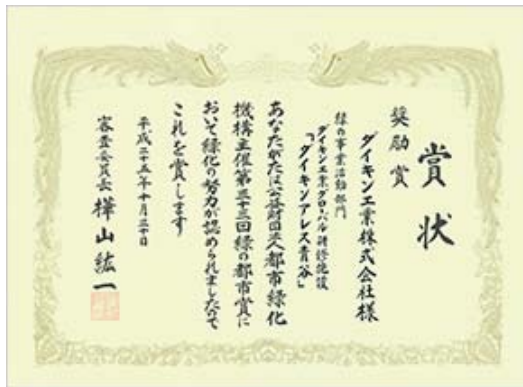 賞状
奨励賞
ダイキン工業株式会社様
緑の事業活動部門
ダイキン工業グローバル研修施設
「ダイキンアレス青谷」
あなたがたは公益財団法人都市緑化
機構主催第三十三回緑の都市賞に
おいて緑化の努力が認められましたので
これを賞します
平成二十五年十月三十日
審査委員長 樺山紘一